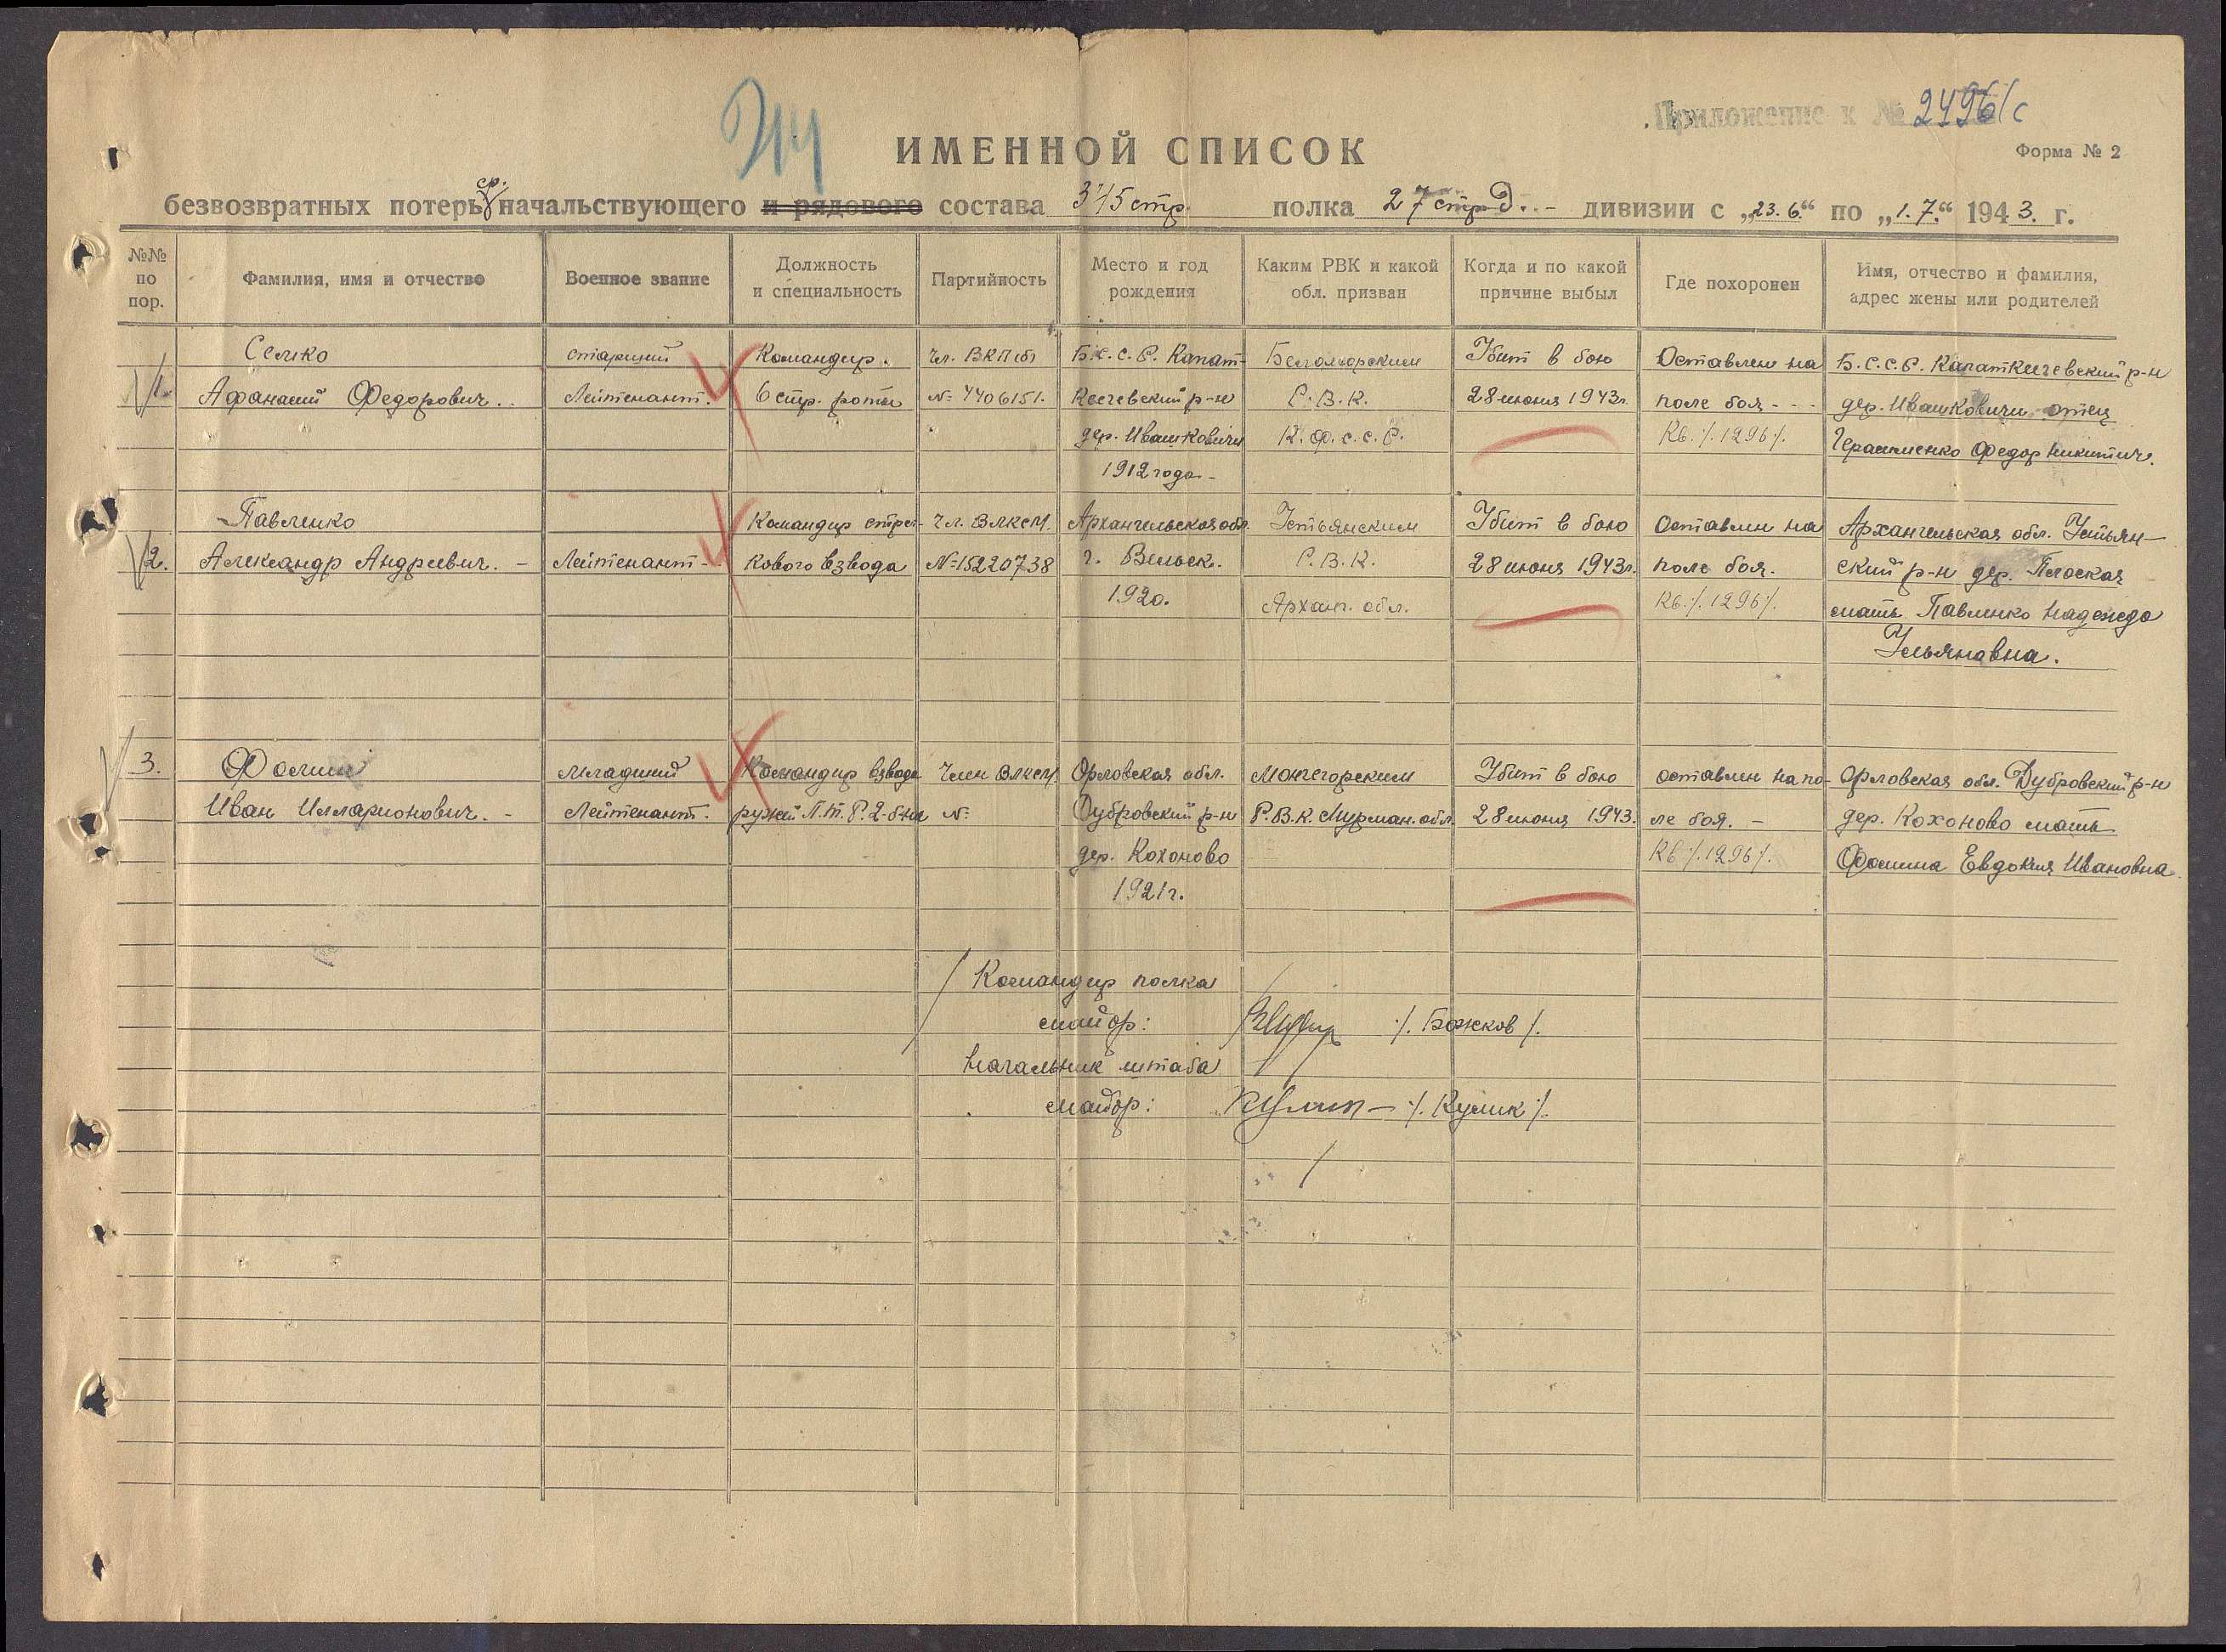 Приложение к № 2496/с
ИМЕННОЙ СПИСОК
Форма № 2
безвозвратных потерь ср. начальствующего и рядового состава 345 стр. полка 27 стр. Д. - дивизии с „23. 6.“ по „1. 7.“ 1943. г.
№№ по пор.
Фамилия, имя и отчество
Военное звание
Должность и специальность
Партийность
Место и год рождения
Каким РВК и какой обл. призван
Когда и по какой причине выбыл
Где похоронен
Имя, отчество и фамилия, адрес жены или родителей
Семко старший Командир Чл. ВКП(б) Б.С.С.Р. Капат- Беломорским Убит в бою Оставлен на Б.С.С.Р. Капаткичевский р-н
1. Афанасий Федорович. Лейтенант. 6 стр. роты №- 4406151. кичевский р-н Р.В.К. 28 июня 1943г. поле боя - - - дер. Ивашковичи отец
дер. Ивашковичи К.Ф.С.С.Р. Кв. /.1296/. Герасименко Федор Никитич.
1912 года -
Павленко Командир стрел- Чл. ВЛКСМ. Архангельская обл. Устьянским Убит в бою Оставлен на Архангельская обл. Устьян-
2. Александр Андреевич. - Лейтенант - кового взвода №-15220738 г. Вельск. Р.В.К. 28 июня 1943г. поле боя. ский р-н дер. Плоская
1920. Арханг. обл. Кв. /.1296/. мать Павленко Надежда
Ульяновна.
3. Фомин младший Командир взвода Член ВЛКСМ Орловская обл. Мончегорским Убит в бою оставлен на по- Орловская обл. Дубровский р-н
Иван Илларионович. - Лейтенант. ружей П.Т.Р. 2-б-на №- Дубровский р-н Р.В.К. Мурман. обл. 28 июня 1943. ле боя. - дер. Кохоново мать
дер. Кохоново Кв /.1296/. Фомина Евдокия Ивановна.
1921г.
Командир полка
майор: /. Божков /.
Начальник штаба
майор: /. Кулик /.